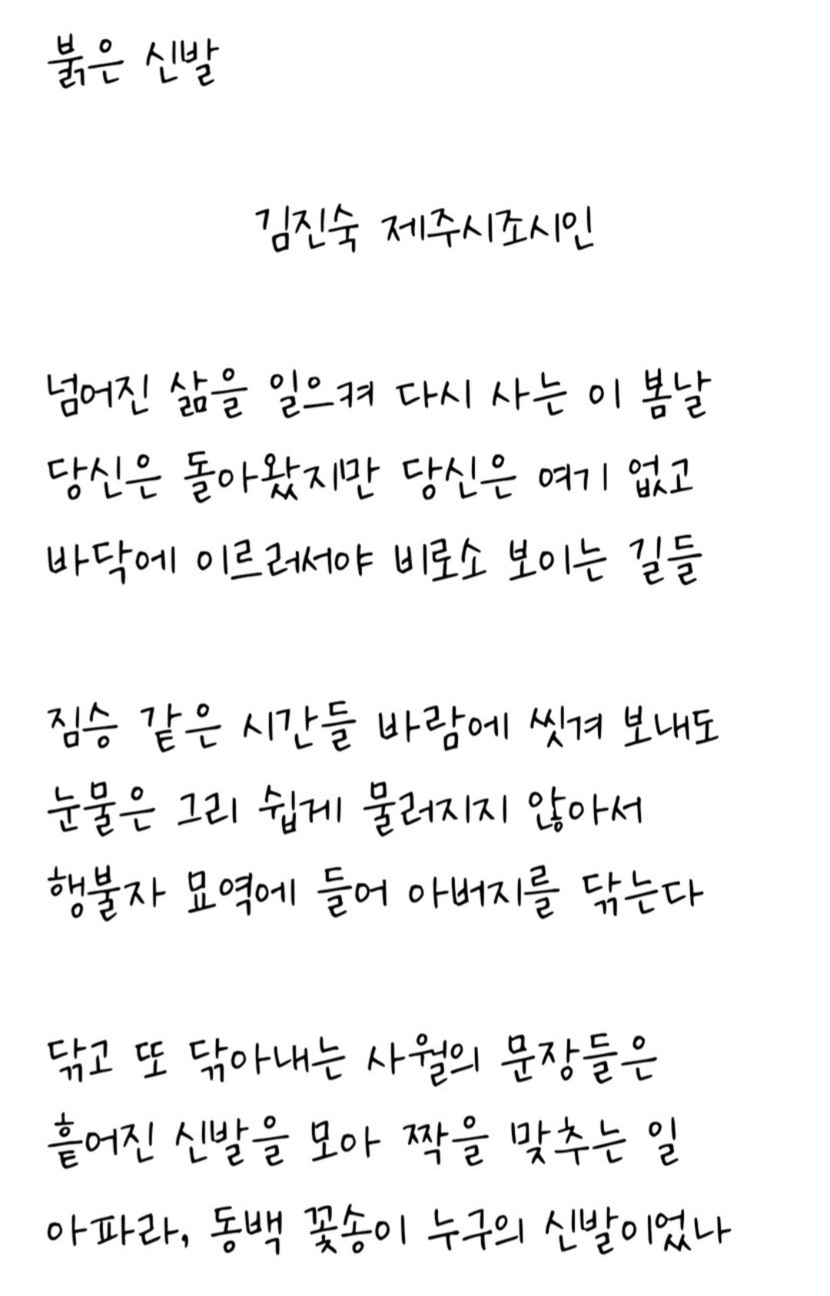 붉은 신발
김진숙 제주시조시인
넘어진 삶을 일으켜 다시 사는 이 봄날
당신은 돌아왔지만 당신은 여기 없고
바닥에 이르러서야 비로소 보이는 길들
짐승 같은 시간들 바람에 씻겨 보내도
눈물은 그리 쉽게 물러지지 않아서
행불자 묘역에 들어 아버지를 닦는다
닦고 또 닦아내는 사월의 문장들은
흩어진 신발을 모아 짝을 맞추는 일
아파라, 동백 꽃송이 누구의 신발이었나